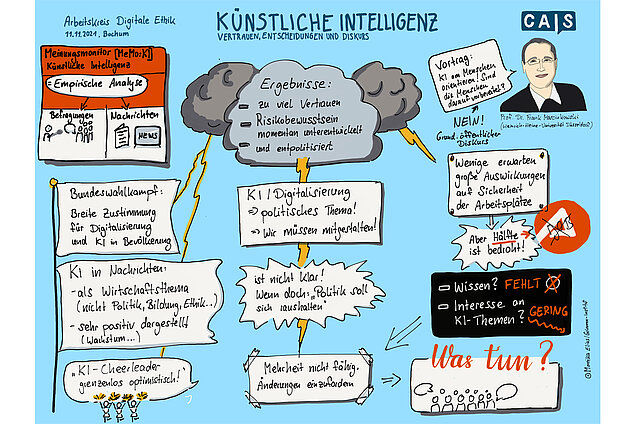 Arbeitskreis Digitale Ethik
11.11.2021, Bochum
KÜNSTLICHE INTELLIGENZ
VERTRAUEN, ENTSCHEIDUNGEN UND DISKURS
CAIS
Meinungsmonitor [MeMo:KI]
Künstliche Intelligenz
Empirische Analyse
Befragungen
Nachrichten
NEWS
Ergebnisse:
zu viel Vertrauen
Risikobewusstsein
momentan unterentwickelt
und entpolitisiert
Vortrag:
KI am Menschen
orientieren! Sind
die Menschen
darauf vorbereitet?
Prof. Dr. Frank Marcinkowski
(Heinrich-Heine-Universität Düsseldorf)
NEIN!
Grund: öffentlicher
Diskurs
Wenige erwarten
große Auswirkungen
auf Sicherheit
der Arbeitsplätze
Aber Hälfte
ist bedroht!
Bundeswahlkampf:
Breite Zustimmung
für Digitalisierung
und KI in Bevölkerung
KI / Digitalisierung
⇒ politisches Thema!
⇒ Wir müssen mitgestalten!
KI in Nachrichten:
- als Wirtschaftsthema
(nicht Politik, Bildung, Ethik..)
- sehr positiv dargestellt
(Wachstum...)
ist nicht klar!
Wenn doch: „Politik soll
sich raushalten"
Wissen? FEHLT
Interesse an
KI-Themen? GERING
„KI-Cheerleader
grenzenlos optimistisch!"
Mehrheit nicht fähig,
Änderungen einzufordern
Was tun?